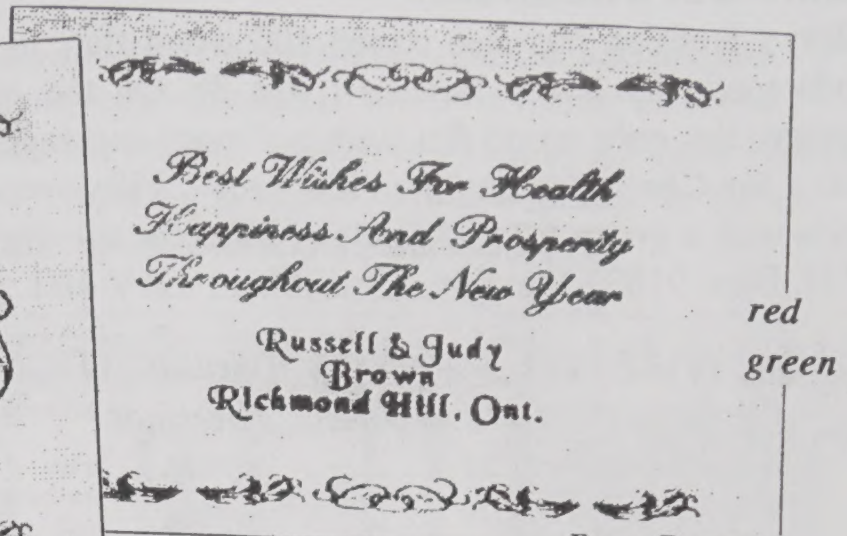 Best Wishes For Health
Happiness And Prosperity
Throughout The New Year
Russell & Judy
Brown
Richmond Hill, Ont.
red
green